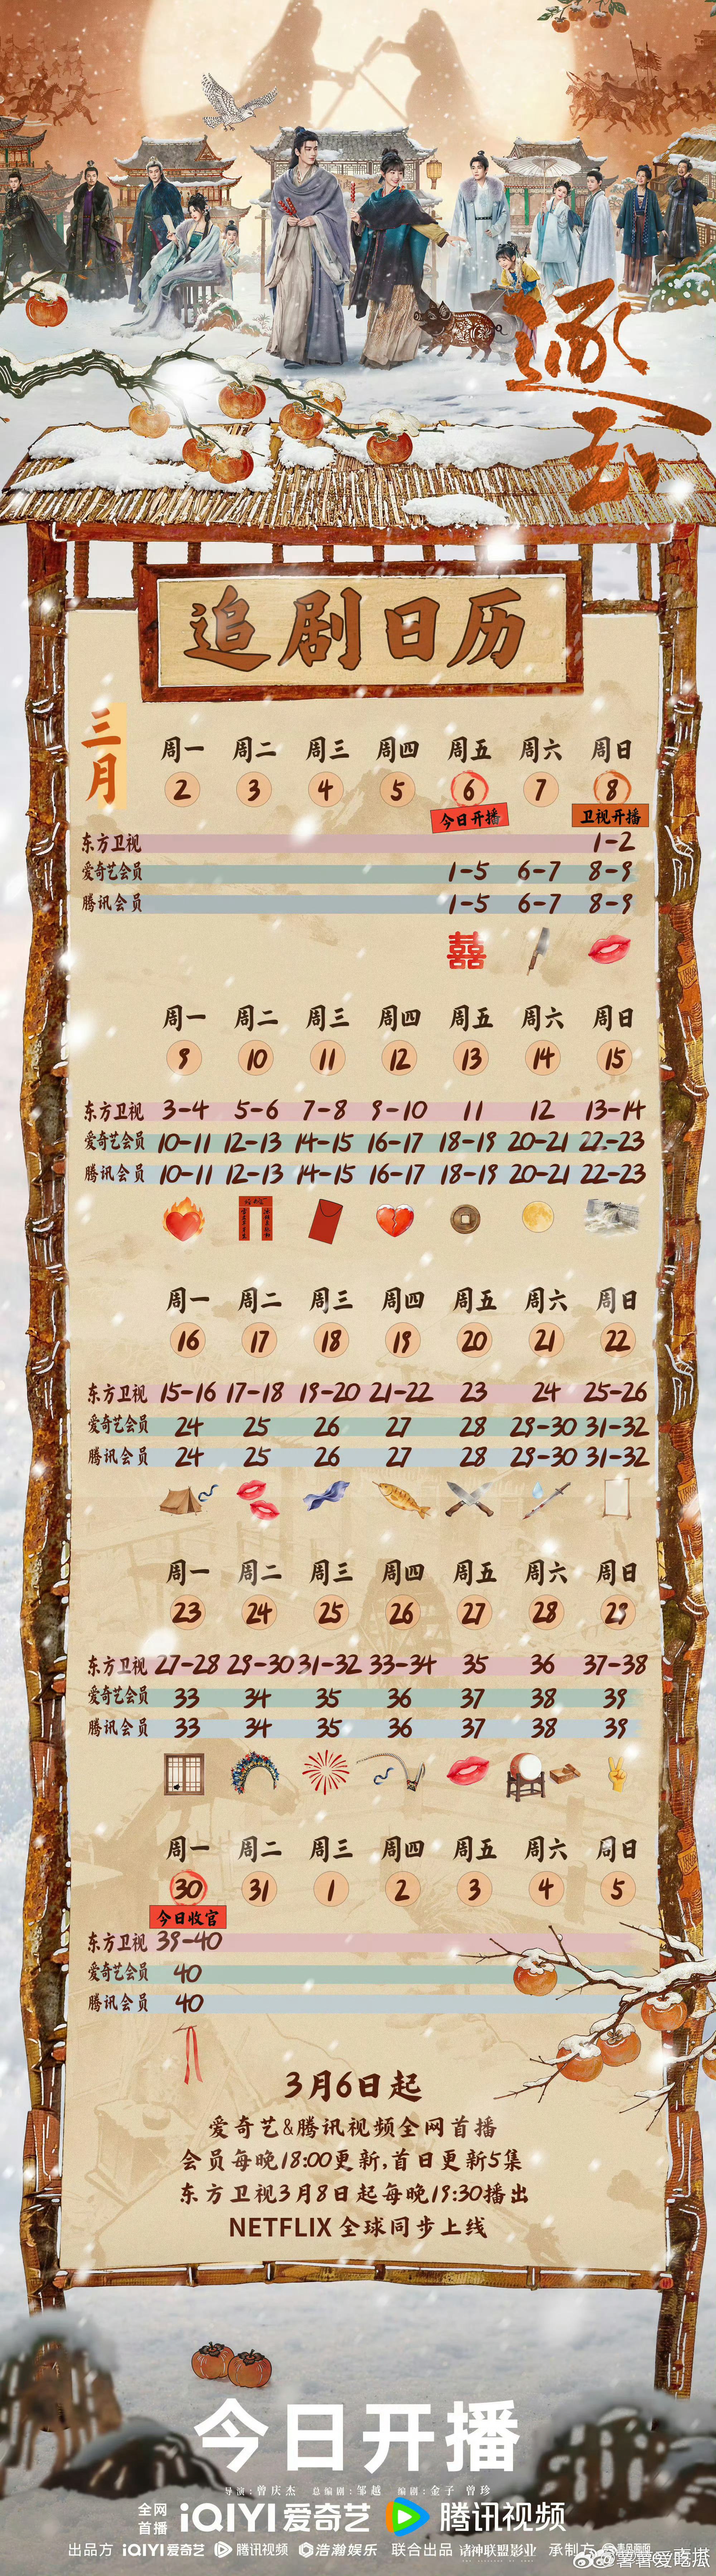 逐玉
追剧日历
三月
周一 周二 周三 周四 周五 周六 周日
2 3 4 5 6 7 8
今日开播 卫视开播
东方卫视 1-2
爱奇艺会员 1-5 6-7 8-9
腾讯会员 1-5 6-7 8-9
囍
周一 周二 周三 周四 周五 周六 周日
9 10 11 12 13 14 15
东方卫视 3-4 5-6 7-8 9-10 11 12 13-14
爱奇艺会员 10-11 12-13 14-15 16-17 18-19 20-21 22-23
腾讯会员 10-11 12-13 14-15 16-17 18-19 20-21 22-23
周一 周二 周三 周四 周五 周六 周日
16 17 18 19 20 21 22
东方卫视 15-16 17-18 19-20 21-22 23 24 25-26
爱奇艺会员 24 25 26 27 28 29-30 31-32
腾讯会员 24 25 26 27 28 29-30 31-32
周一 周二 周三 周四 周五 周六 周日
23 24 25 26 27 28 29
东方卫视 27-28 29-30 31-32 33-34 35 36 37-38
爱奇艺会员 33 34 35 36 37 38 39
腾讯会员 33 34 35 36 37 38 39
周一 周二 周三 周四 周五 周六 周日
30 31 1 2 3 4 5
今日收官
东方卫视 39-40
爱奇艺会员 40
腾讯会员 40
3月6日起
爱奇艺&腾讯视频全网首播
会员每晚18:00更新,首日更新5集
东方卫视3月8日起每晚19:30播出
NETFLIX 全球同步上线
今日开播
导演:曾庆杰 总编剧:邹越 编剧:金子 曾珍
全网首播 iQIYI爱奇艺 腾讯视频
出品方 iQIYI爱奇艺 腾讯视频 浩瀚娱乐 联合出品 诸神联盟影业 承制方
薯薯爱吃瓜